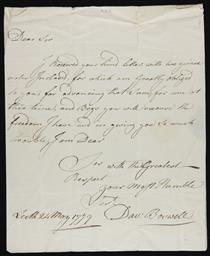 Dear Sir
I Received your kind letter with two guineas
order Inclosed for which am Greatly obliged
to you, for advancing that Sum for me at
this time, and Begs you will excuse the
freedom I have and am giving you so much
trouble, I am Dear
Sir with the Greatest
Respect
your Most Humble
Sert
Leith 24 May 1779
Davd Boswell